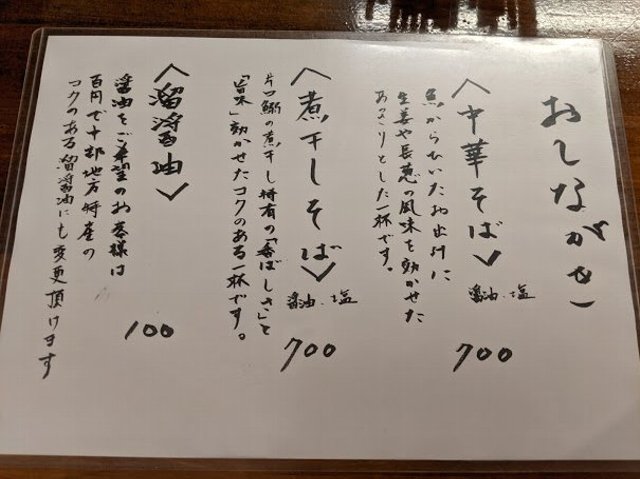 おしながき
〈中華そば〉
醤油・塩
700
魚からひいたお出汁に
生姜や長葱の風味を効かせた
あっさりとした一杯です。
〈煮干しそば〉
醤油・塩
700
片口鰯の煮干し特有の「香ばしさ」と
「旨味」効かせたコクのある一杯です。
〈溜醤油〉
100
醤油をご希望のお客様は
百円で十部地方特産の
コクのある溜醤油にも変更頂けます